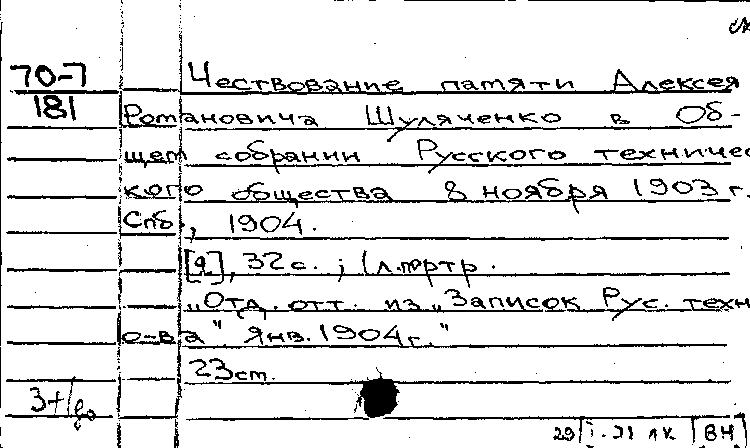 70-7
181
Чествование памяти Алексея
Романовича Шуляченко в Об-
щем собрании Русского техничес
кого общества 8 ноября 1903 г.
Спб, 1904.
32 с. ; 1 л. портр.
„Отд. отт. из „Записок Рус. техн
о-ва" янв. 1904 г."
23 cm.
ВН